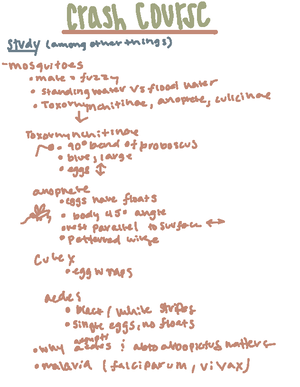 Crash Course
study (among other things)
- mosquitoes
• male = fuzzy
• standing water vs flood water
• Toxorhynchitinae, anophele, culicinae
Toxorhynchitinae
• 90° bend of proboscus
• blue, large
• eggs ↕
anophele
• eggs have floats
• body 45° angle
• rest parallel to surface ↔
• patterned wings
Culex
• egg rafts
aedes
• black/white stripes
• single eggs, no floats
• why aegypti aedes & albopictus matters
• malaria (falciparum, vivax)